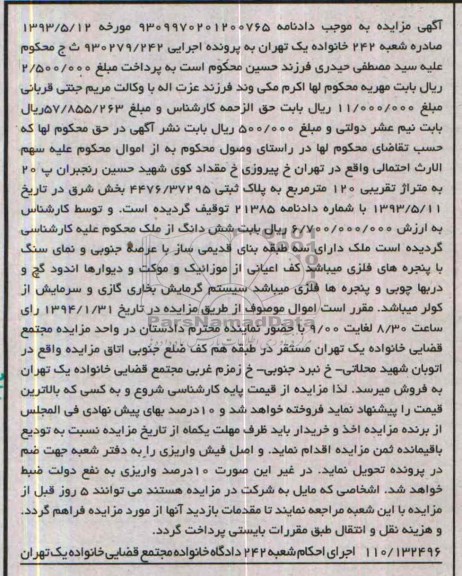 آگهی مزایده به موجب دادنامه ۹۳۰۹۹۷۰۲۰۱۲۰۰۷۶۵ مورخه ۱۳۹۳/۵/۱۲
صادره شعبه ۲۴۲ خانواده یک تهران به پرونده اجرایی ۹۳۰۲۷۹/۲۴۲ ث ج محکوم
علیه سید مصطفی حیدری فرزند حسین محکوم است به پرداخت مبلغ ۲/۵۰۰/۰۰۰
ریال بابت مهریه محکوم لها اکرم مکی وند فرزند عزت اله با وکالت مریم جنتی قربانی
مبلغ ۱۱/۰۰۰/۰۰۰ ریال بابت حق الزحمه کارشناس و مبلغ ۵۷/۸۵۵/۲۶۳ریال
بابت نیم عشر دولتی و مبلغ ۵۰۰/۰۰۰ ریال بابت نشر آگهی در حق محکوم لها که
حسب تقاضای محکوم لها در راستای وصول محکوم به از اموال محکوم علیه سهم
الارث احتمالی واقع در تهران خ پیروزی خ مقداد کوی شهید حسین رنجبران پ ۲۰
به متراژ تقریبی ۱۲۰ مترمربع به پلاک ثبتی ۴۴۷۶/۳۷۲۹۵ بخش شرق در تاریخ
۱۳۹۳/۵/۱۱ با شماره دادنامه ۲۱۳۸۵ توقیف گردیده است. و توسط کارشناس
به ارزش ۶/۷۰۰/۰۰۰/۰۰۰ ریال بابت شش دانگ از ملک محکوم علیه کارشناسی
گردیده است ملک دارای سه طبقه بنای قدیمی ساز با عرصه جنوبی و نمای سنگ
با پنجره های فلزی میباشد کف اعیانی از موزائیک و موکت و دیوارها اندود گچ و
دربها چوبی و پنجره ها فلزی میباشد سیستم گرمایش بخاری گازی و سرمایش از
کولر میباشد. مقرر است اموال موصوف از طریق مزایده در تاریخ ۱۳۹۴/۱/۳۱ رای
ساعت ۸/۳۰ لغایت ۹/۰۰ با حضور نماینده محترم دادستان در واحد مزایده مجتمع
قضایی خانواده یک تهران مستقر در طبقه هم کف ضلع جنوبی اتاق مزایده واقع در
اتوبان شهید محلاتی- خ نبرد جنوبی- خ زمزم غربی مجتمع قضایی خانواده یک تهران
به فروش میرسد. لذا مزایده از قیمت پایه کارشناسی شروع و به کسی که بالاترین
قیمت را پیشنهاد نماید فروخته خواهد شد و ۱۰درصد بهای پیش نهادی فی المجلس
از برنده مزایده اخذ و خریدار باید ظرف مهلت یکماه از تاریخ مزایده نسبت به تودیع
باقیمانده ثمن مزایده اقدام نماید. و اصل فیش واریزی را به دفتر شعبه جهت ضم
در پرونده تحویل نماید. در غیر این صورت ۱۰درصد واریزی به نفع دولت ضبط
خواهد شد. اشخاصی که مایل به شرکت در مزایده هستند می توانند ۵ روز قبل از
مزایده با این شعبه مراجعه نمایند تا مقدمات بازدید آنها از مورد مزایده فراهم گردد.
و هزینه نقل و انتقال طبق مقررات بایستی پرداخت گردد.
۱۱۰/۱۳۲۴۹۶ اجرای احکام شعبه ۲۴۲ دادگاه خانواده مجتمع قضایی خانواده یک تهران